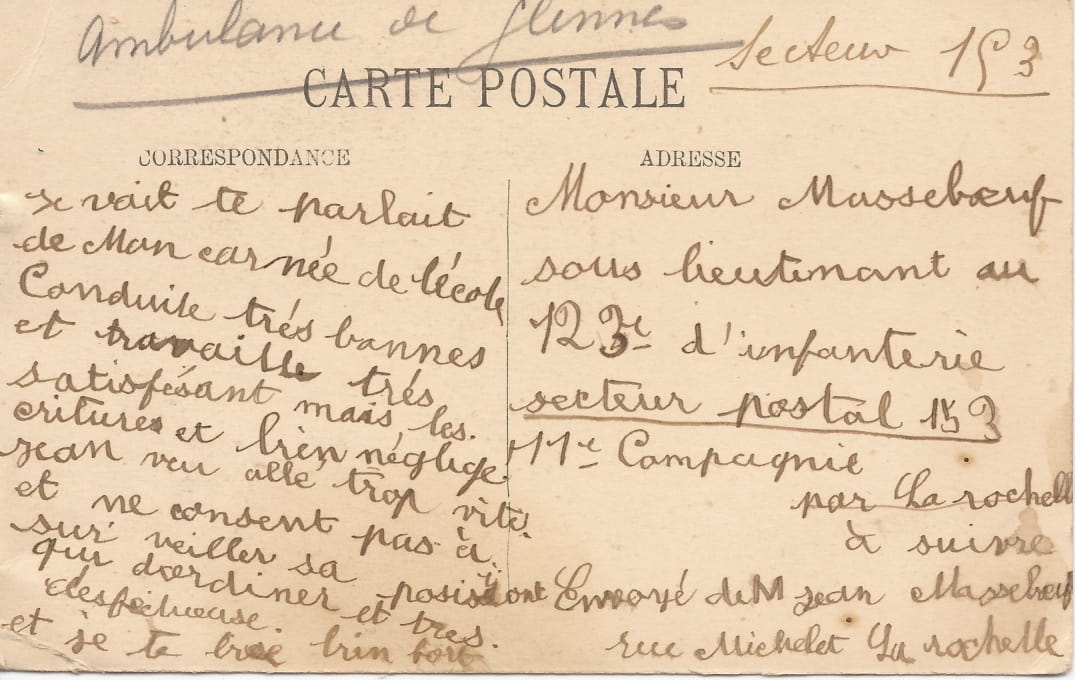 Ambulance de Glennes
Secteur 153
CARTE POSTALE
CORRESPONDANCE
ADRESSE
je vait te parlait
de Mon carnée de l'écol
Conduite trés bonnes
et travaille trés
satisfésant mais les
critures et bien néglige.
jean veu allé trop vite.
et ne consent pas à
sur veiller sa
qui d'ordiner et tres
despectueuse.
et je te bise bien fort
Monsieur Massebœuf
sous lieutenant au
123e d'infanterie
secteur postal 153
11e Compagnie
par La rochell
à suivre
Envoyé de M jean Massebœuf
rue Michelet La rochelle